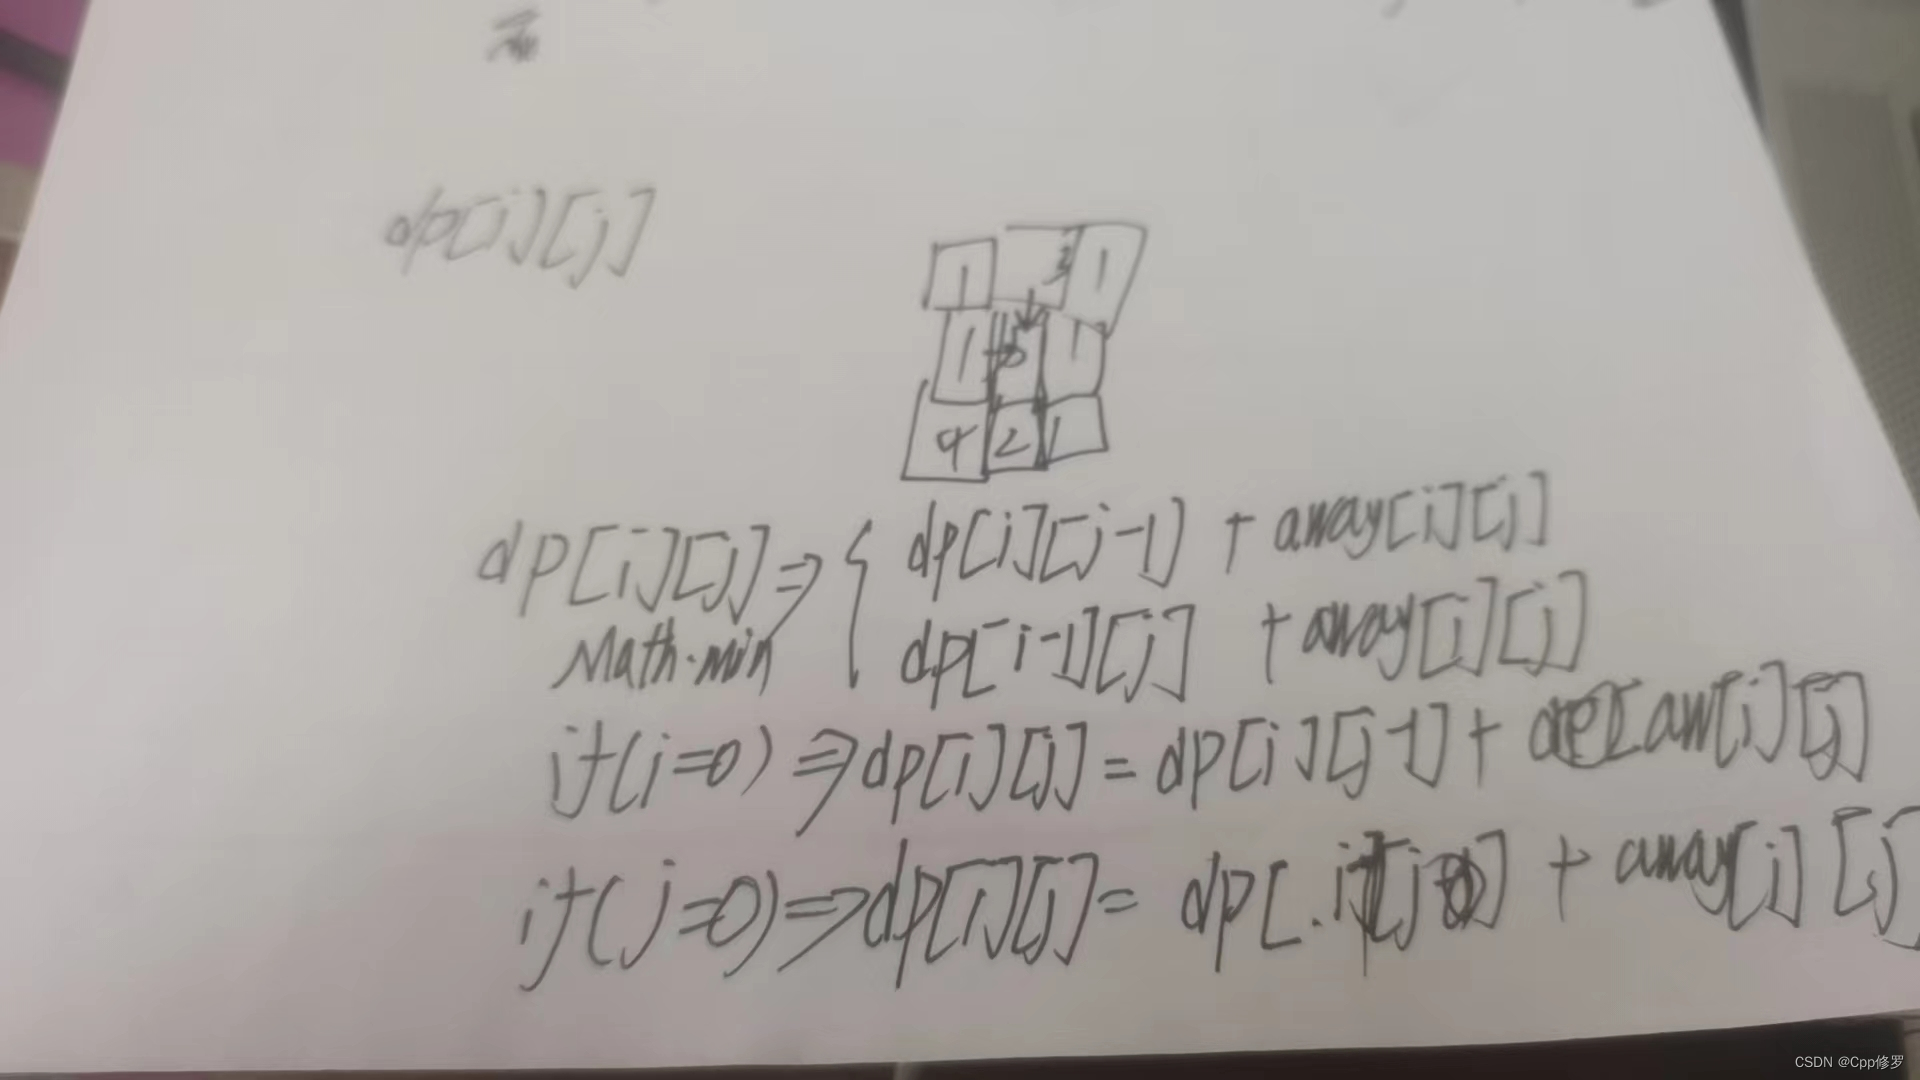 dp[i][j]
1 3 1
1 5 1
4 2 1
dp[i][j] => { dp[i][j-1] + array[i][j]
Math.min dp[i-1][j] + array[i][j]
if(i=0) => dp[i][j] = dp[i][j-1] + arr[i][j]
if(j=0) => dp[i][j] = dp[ + array[i][j]
CSDN @Cpp修罗